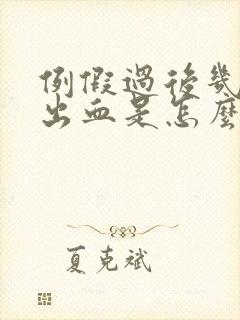 例假過後幾
出血是怎麼
夏克斌